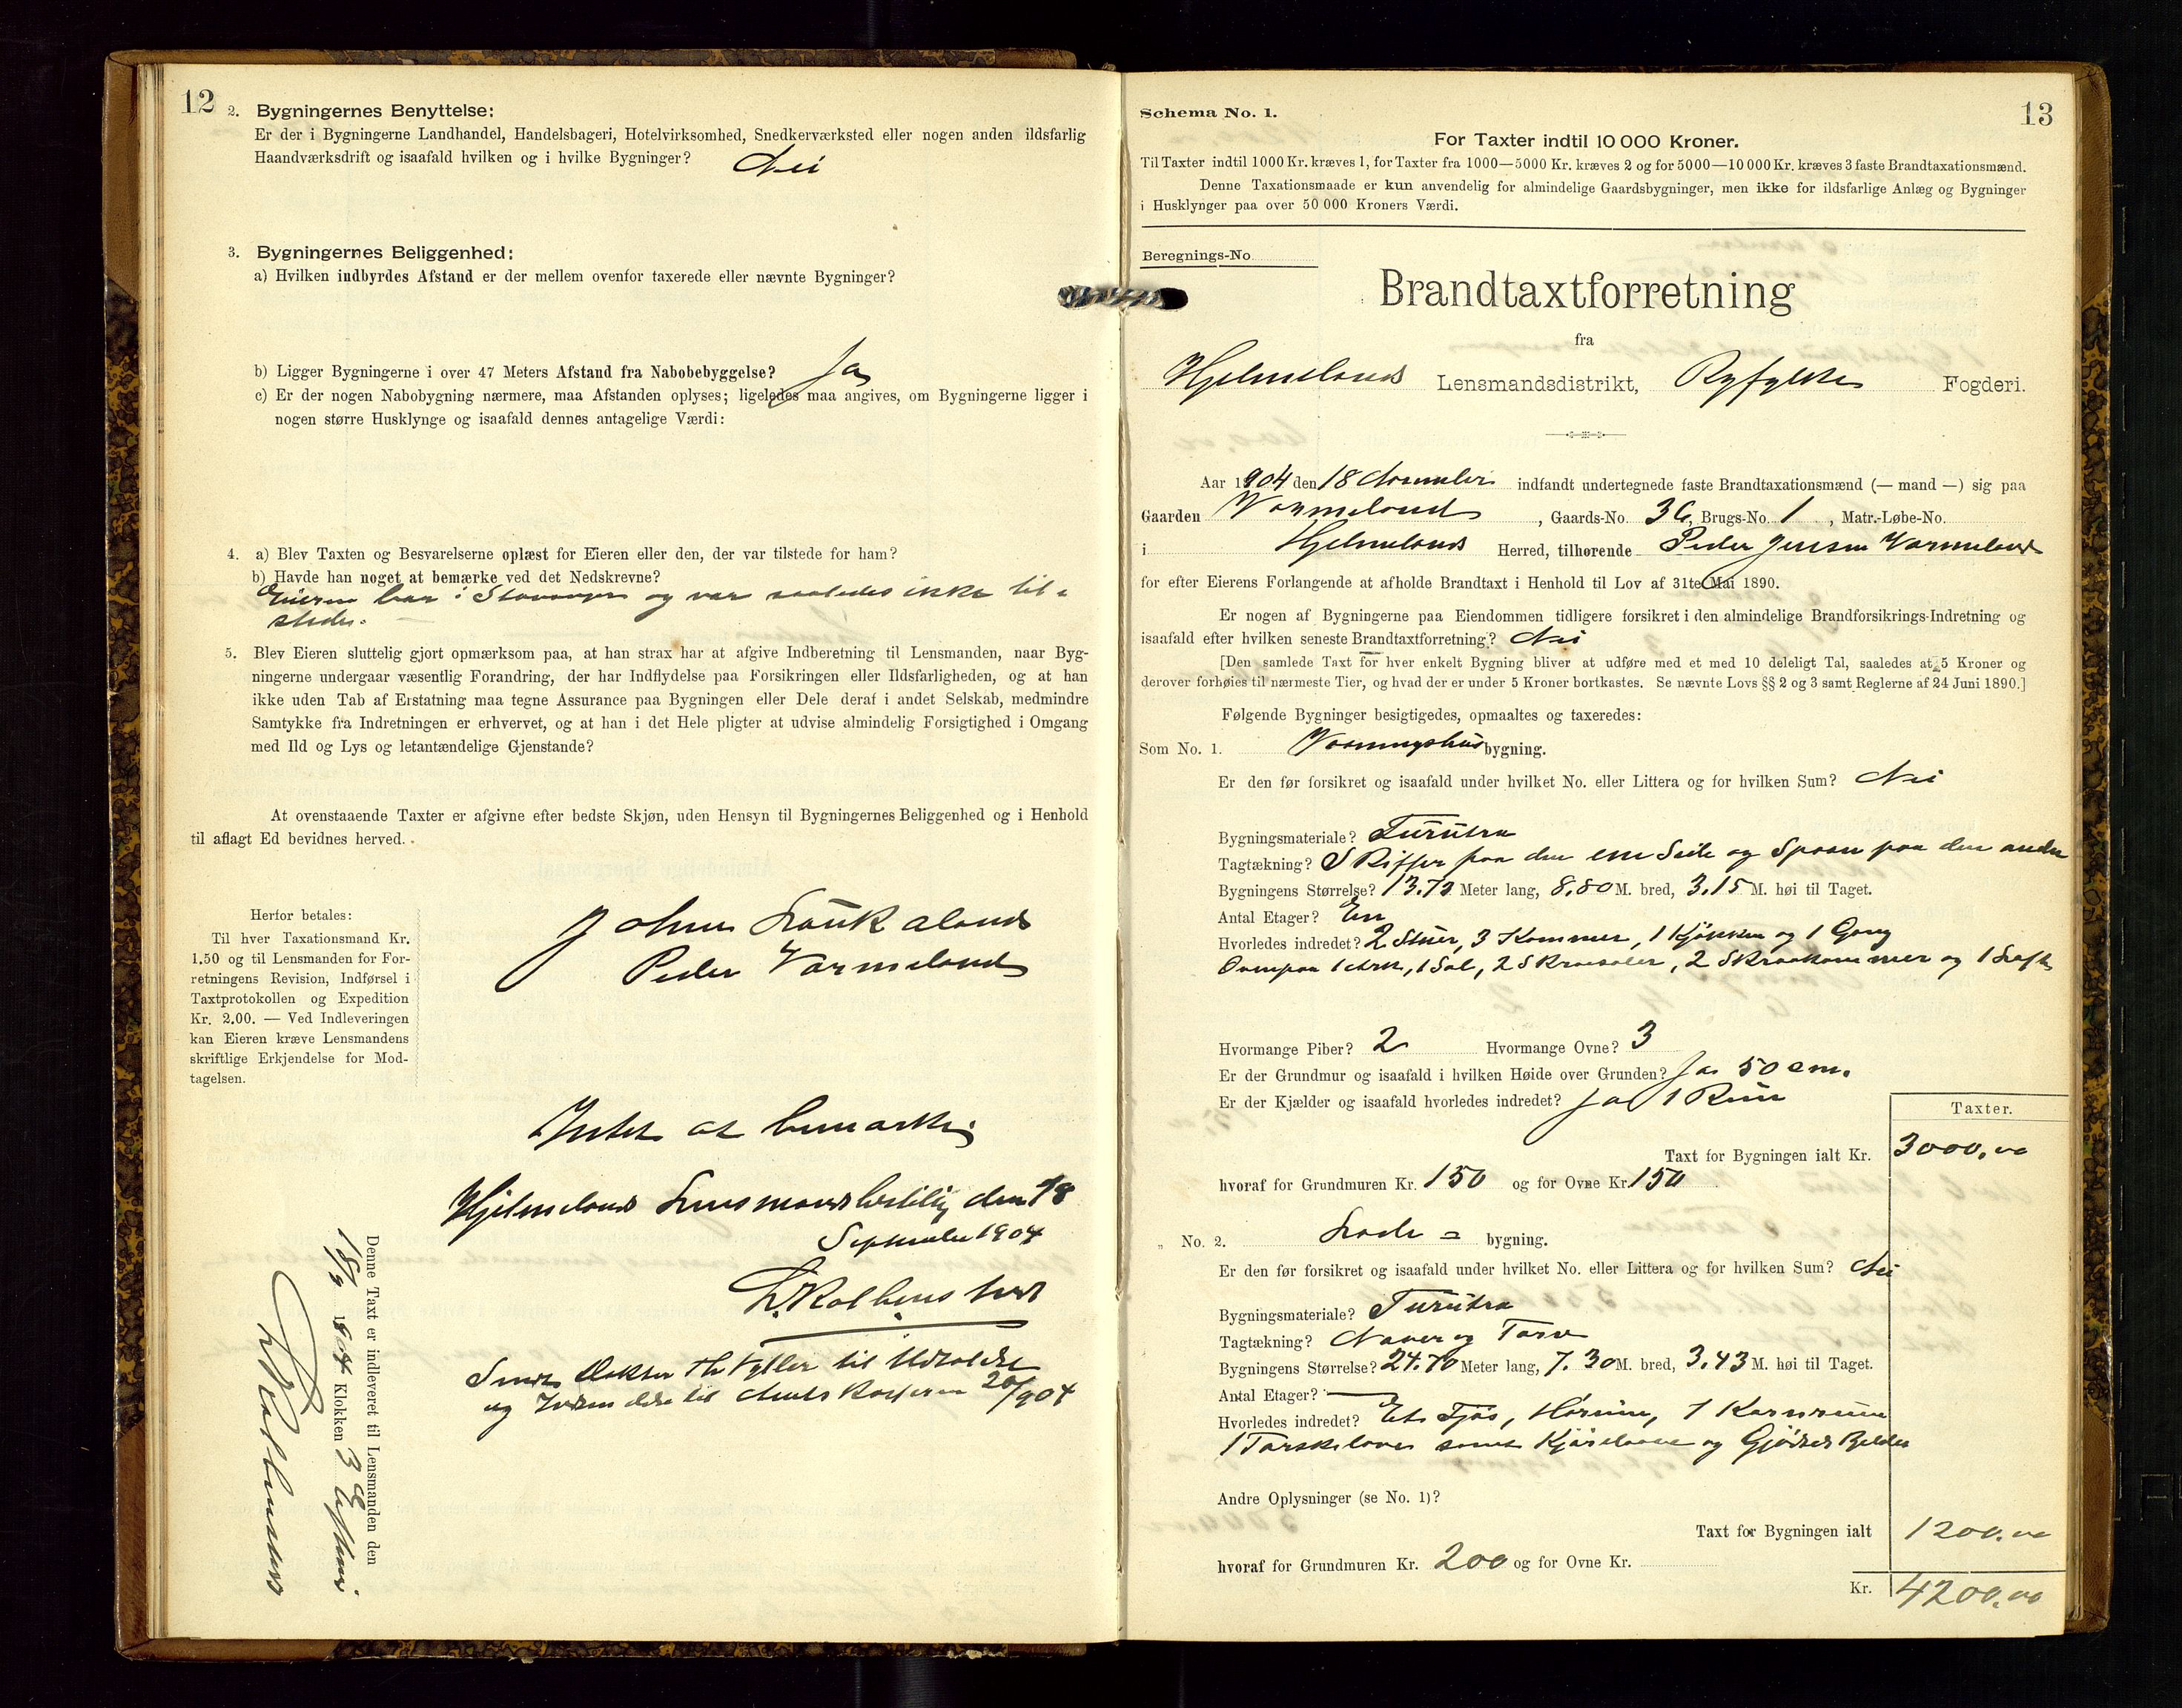 12
2. Bygningernes Benyttelse:
Er der i Bygningerne Landhandel, Handelsbageri, Hotelvirksomhed, Snedkerværksted eller nogen anden ildsfarlig
Haandværksdrift og isaafald hvilken og i hvilke Bygninger? Nei
3. Bygningernes Beliggenhed:
a) Hvilken indbyrdes Afstand er der mellem ovenfor taxerede eller nævnte Bygninger?
b) Ligger Bygningerne i over 47 Meters Afstand fra Nabobebyggelse? Ja
c) Er der nogen Nabobygning nærmere, maa Afstanden oplyses; ligeledes maa angives, om Bygningerne ligger i
nogen større Husklynge og isaafald dennes antagelige Værdi:
4. a) Blev Taxten og Besvarelserne oplæst for Eieren eller den, der var tilstede for ham?
b) Havde han noget at bemærke ved det Nedskrevne?
Eieren bor i Stavanger og var saaledes ikke til-
stede.
5. Blev Eieren sluttelig gjort opmærksom paa, at han strax har at afgive Indberetning til Lensmanden, naar Byg-
ningerne undergaar væsentlig Forandring, der har Indflydelse paa Forsikringen eller Ildsfarligheden, og at han
ikke uden Tab af Erstatning maa tegne Assurance paa Bygningen eller Dele deraf i andet Selskab, medmindre
Samtykke fra Indretningen er erhvervet, og at han i det Hele pligter at udvise almindelig Forsigtighed i Omgang
med Ild og Lys og letantændelige Gjenstande?
At ovenstaaende Taxter er afgivne efter bedste Skjøn, uden Hensyn til Bygningernes Beliggenhed og i Henhold
til aflagt Ed bevidnes herved.
Herfor betales:
Til hver Taxationsmand Kr.
1.50 og til Lensmanden for For-
retningens Revision, Indførsel i
Taxtprotokollen og Expedition
Kr. 2.00. — Ved Indleveringen
kan Eieren kræve Lensmandens
skriftlige Erkjendelse for Mod-
tagelsen.
John Laukaland
Peder Vormeland
Intet at bemærke.
Hjelmelands Lensmandsbestilling den 18
September 1904
til
og til 20/9 04
Denne Taxt er indleveret til Lensmanden den
18/9 1904 Klokken 3 Efterm
Schema No. 1.
13
For Taxter indtil 10 000 Kroner.
Til Taxter indtil 1000 Kr. kræves 1, for Taxter fra 1000—5000 Kr. kræves 2 og for 5000—10 000 Kr. kræves 3 faste Brandtaxationsmænd.
Denne Taxationsmaade er kun anvendelig for almindelige Gaardsbygninger, men ikke for ildsfarlige Anlæg og Bygninger
i Husklynger paa over 50 000 Kroners Værdi.
Beregnings-No
Brandtaxtforretning
fra
Hjelmelands Lensmandsdistrikt, Ryfylke Fogderi.
Aar 1904 den 18 indfandt undertegnede faste Brandtaxationsmænd (— mand —) sig paa
Gaarden Vormeland, Gaards-No. 36, Brugs-No. 1, Matr.-Løbe-No.
i Hjelmelands Herred, tilhørende Peder Jensen Vormeland
for efter Eierens Forlangende at afholde Brandtaxt i Henhold til Lov af 31te Mai 1890.
Er nogen af Bygningerne paa Eiendommen tidligere forsikret i den almindelige Brandforsikrings-Indretning og
isaafald efter hvilken seneste Brandtaxtforretning? Nei
[Den samlede Taxt for hver enkelt Bygning bliver at udføre med et med 10 deleligt Tal, saaledes at 5 Kroner og
derover forhøies til nærmeste Tier, og hvad der er under 5 Kroner bortkastes. Se nævnte Lovs §§ 2 og 3 samt Reglerne af 24 Juni 1890.]
Følgende Bygninger besigtigedes, opmaaltes og taxeredes:
Som No. 1. Vaaningshus bygning.
Er den før forsikret og isaafald under hvilket No. eller Littera og for hvilken Sum? Nei
Bygningsmateriale? Furutræ
Tagtækning? Skiffer paa den ene Side og Spaan paa den anden
Bygningens Størrelse? 13.72 Meter lang, 8.80 M. bred, 3.15 M. høi til Taget.
Antal Etager? En
Hvorledes indredet? 2 Stuer, 3 Kammer, 1 Kjøkken og 1 Gang
Ovenpaa 1 Ark, 1 Sal, 2 Skraasaler, 2 Skraakammer og 1 Loft
Hvormange Piber? 2 Hvormange Ovne? 3
Er der Grundmur og isaafald i hvilken Høide over Grunden? Ja 50 cm.
Er der Kjælder og isaafald hvorledes indredet? Ja 1 Rum
Taxter.
Taxt for Bygningen ialt Kr. 3000,00
hvoraf for Grundmuren Kr. 150 og for Ovne Kr. 150
„ No. 2. Lade = bygning.
Er den før forsikret og isaafald under hvilket No. eller Littera og for hvilken Sum? Nei
Bygningsmateriale? Furutræ
Tagtækning? Næver og Torv
Bygningens Størrelse? 24.70 Meter lang, 7.30 M. bred, 3.43 M. høi til Taget.
Antal Etager? —
Hvorledes indredet? Et Fjøs, Hørum, 1 Kornrum
1 Tærskelove samt Kjørelaave og Gjødselkjelder
Andre Oplysninger (se No. 1)?
Taxt for Bygningen ialt 1200,00
hvoraf for Grundmuren Kr. 200 og for Ovne Kr.
Kr. 4200,00